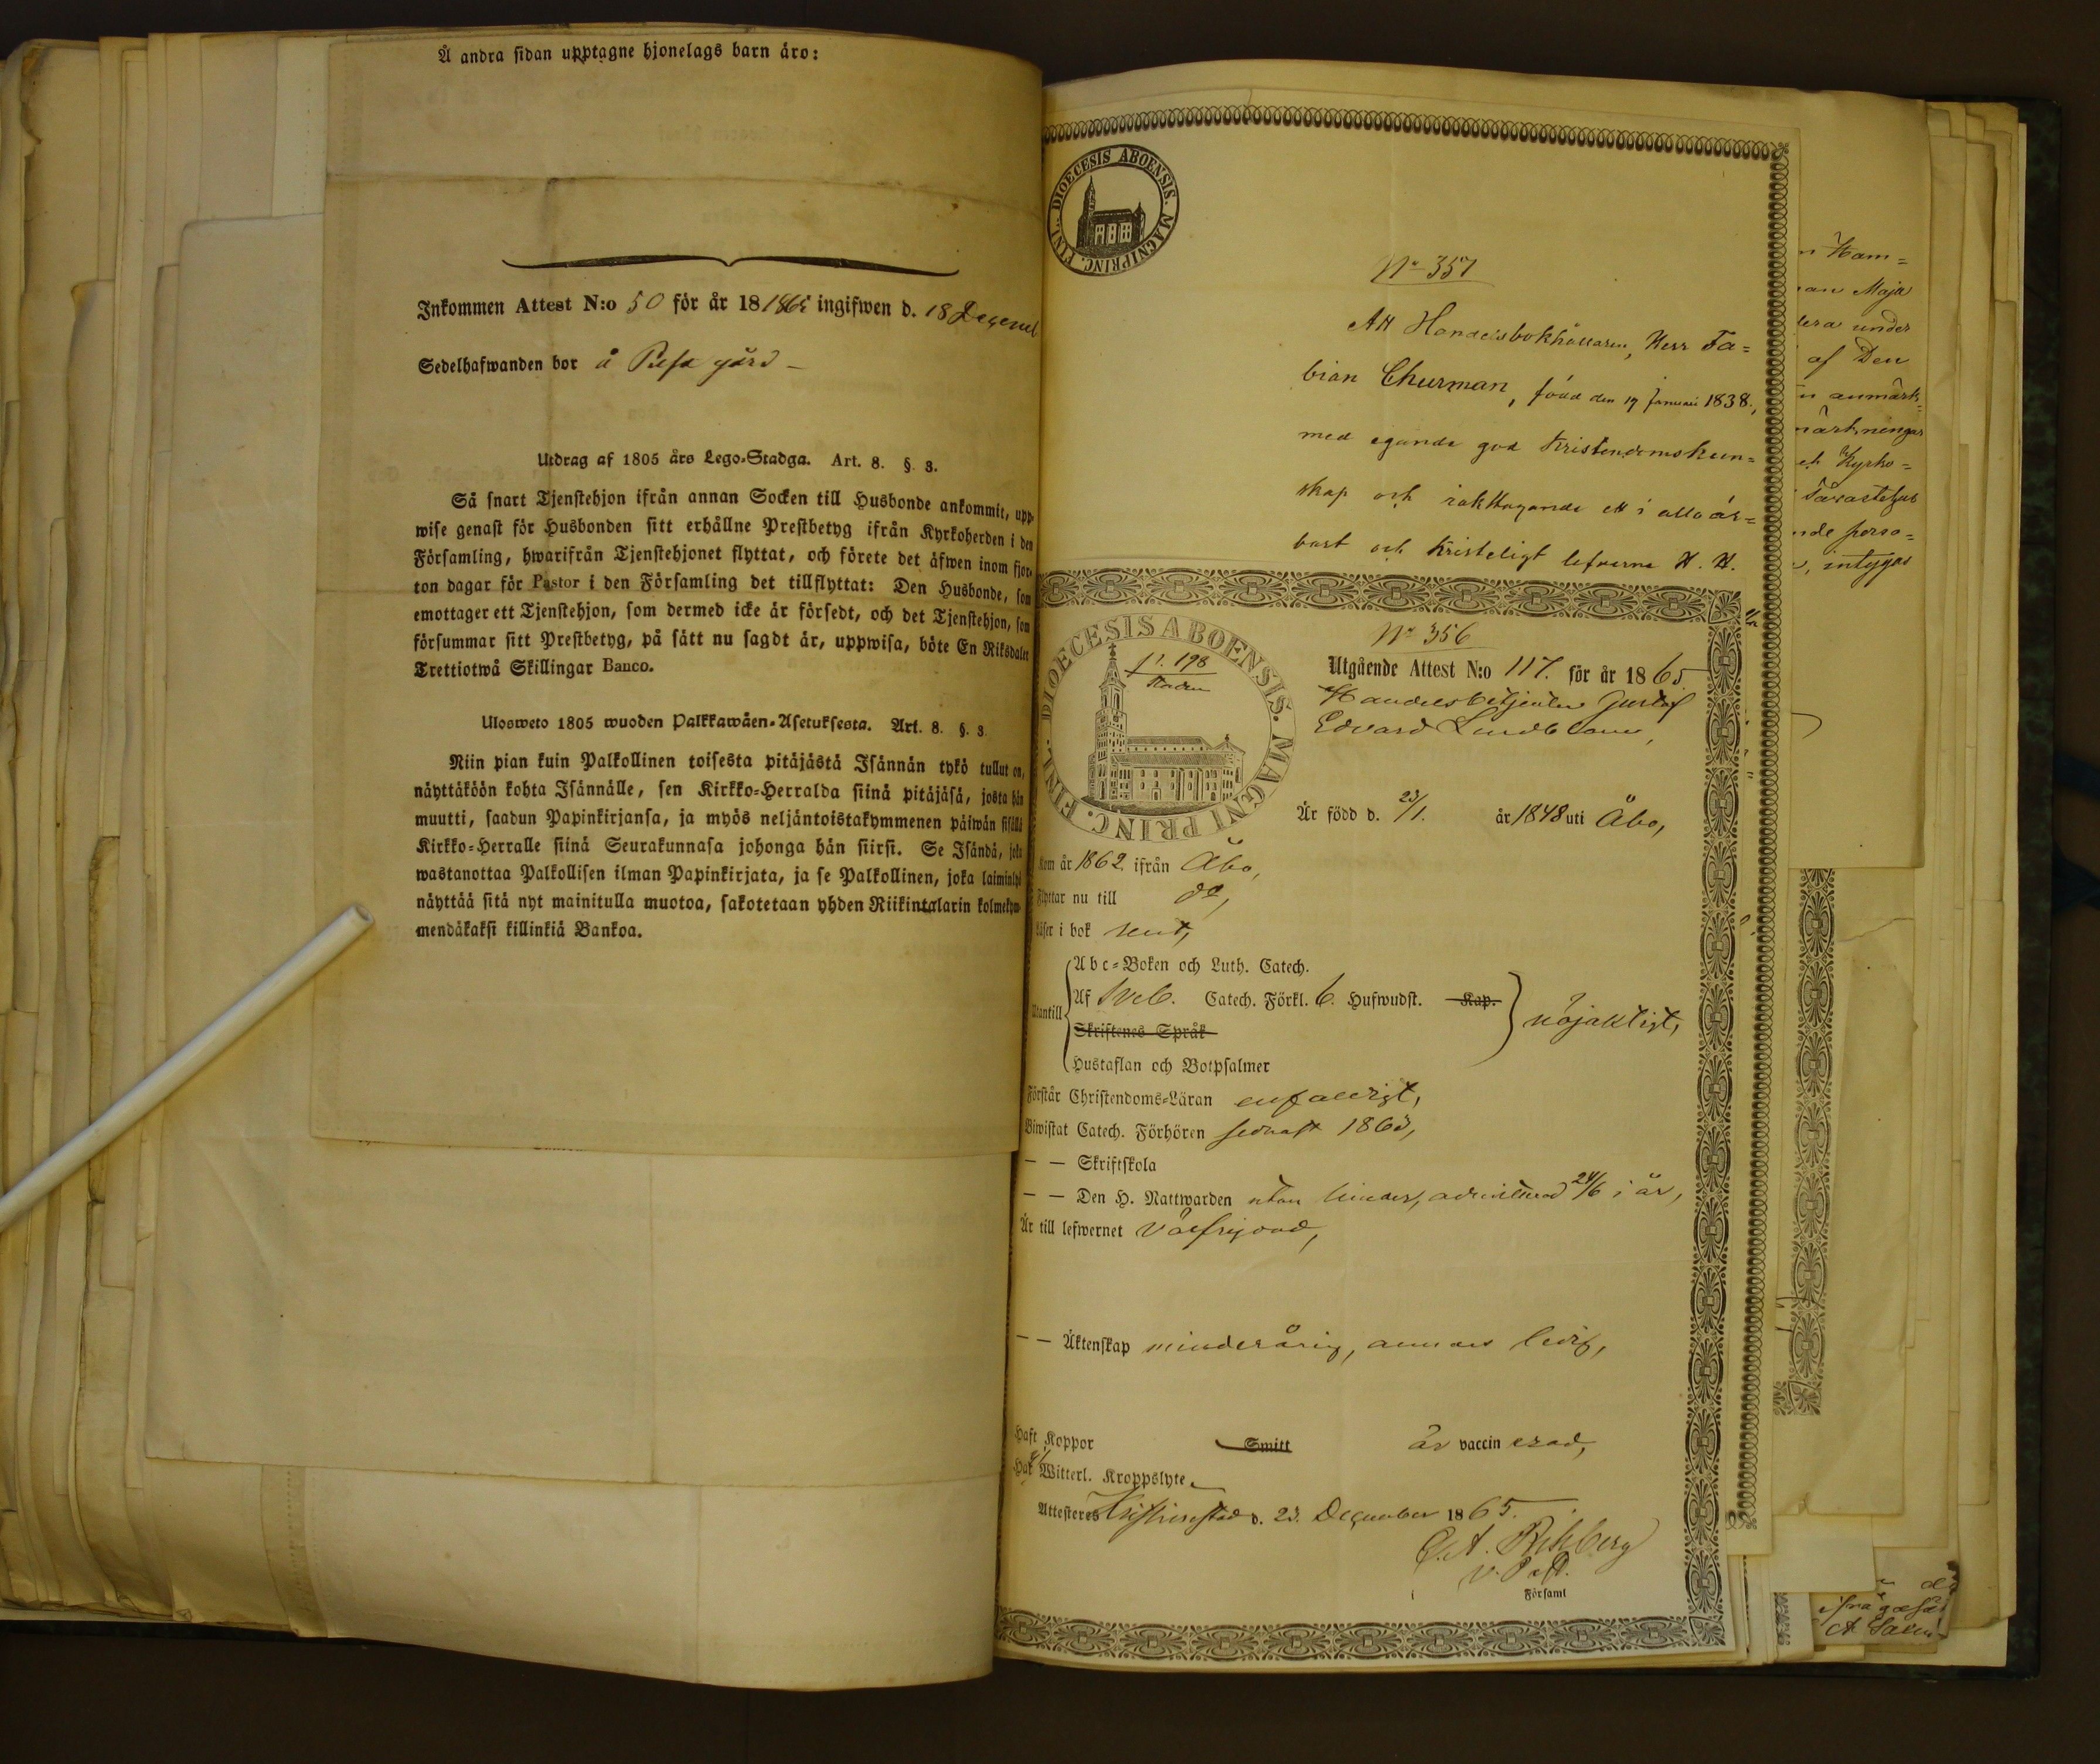 Å andra sidan upptagne hjonelags barn äro:
Inkommen Attest N:o 50 för år 18 1865 ingifwen d. 18 Decemb
Sedelhafwanden bor å gård –
Utdrag af 1805 års Lego-Stadga. Art. 8. §. 3.
Så snart Tjenstehjon ifrån annan Socken till Husbonde ankommit, upp-
wise genast för Husbonden sitt erhållne Prestbetyg ifrån Kyrkoherden i den
Församling, hwarifrån Tjenstehjonet flyttat, och förete det äfwen inom fjor-
ton dagar för Pastor i den Församling det tillflyttat: Den Husbonde, som
emottager ett Tjenstehjon, som dermed icke är försedt, och det Tjenstehjon, som
försummar sitt Prestbetyg, på sätt nu sagdt är, uppwisa, böte En Riksdaler
Trettiotwå Skillingar Banco.
Ulosweto 1805 wuoden Palkkawäen-Asetuksesta. Art. 8. §. 3
Niin pian kuin Palkollinen toisesta pitäjästä Isännän tykö tullut on,
näyttäköön kohta Isännälle, sen Kirkko-Herralda siinä pitäjäsä, josta hän
muutti, saadun Papinkirjansa, ja myös neljäntoistakymmenen päiwän sisällä
Kirkko-Herralle siinä Seurakunnasa johonga hän siirsi. Se Isändä, joka
wastanottaa Palkollisen ilman Papinkirjata, ja se Palkollinen, joka laiminlyö
näyttää sitä nyt mainitulla muotoa, sakotetaan yhden Riikintalarin kolmekym-
mendäkaksi killinkiä Bankoa.
DIOECESIS ABOENSIS. MAGNI PRINC. FINL.
No 357
Att Handelsbokhållaren, Herr Fa=
bian Churman, född den 19 Januari 1838.,
med egande god Kristendomskun=
skap och iakttagande ett i allo är=
bart och kristeligt lefverne H. H.
DIOECESIS ABOENSIS. MAGNI PRINC. FINL.
p. 198
Staden
No 356
Utgående Attest N:o 117. för år 1865
Handelsbetjenten Gustaf
Edvard Lindblom,
Är född d. 23/1. år 1848 uti Åbo,
Kom år 1862 ifrån Åbo,
Flyttar nu till do,
Läser i bok rent,
Abc-Boken och Luth. Catech.
Utantill
Af Sveb. Catech. Förkl. 6. Hufwudst. Kap.
Skriftenes Språk
Hustaflan och Botpsalmer
nöjaktigt,
Förstår Christendoms-Läran enfaldigt,
Biwistat Catech. Förhören sednast 1863,
— — Skriftskola
— — Den H. Nattwarden utan hinder, admitterad 24/6 i år,
Är till lefwernet välfrejdad,
— — Äktenskap minderårig, annars ledig,
Haft Koppor Smitt är vaccinerad,
Har ej Witterl. Kroppslyte
Attesteres Kristinestad d. 23. December 1865.
v. Past.
Församl
n Ham=
an Maja
tera under
af Den
n anmärk=
märkningar
Kyrko=
Tavastehus
nde perso=
, intygas